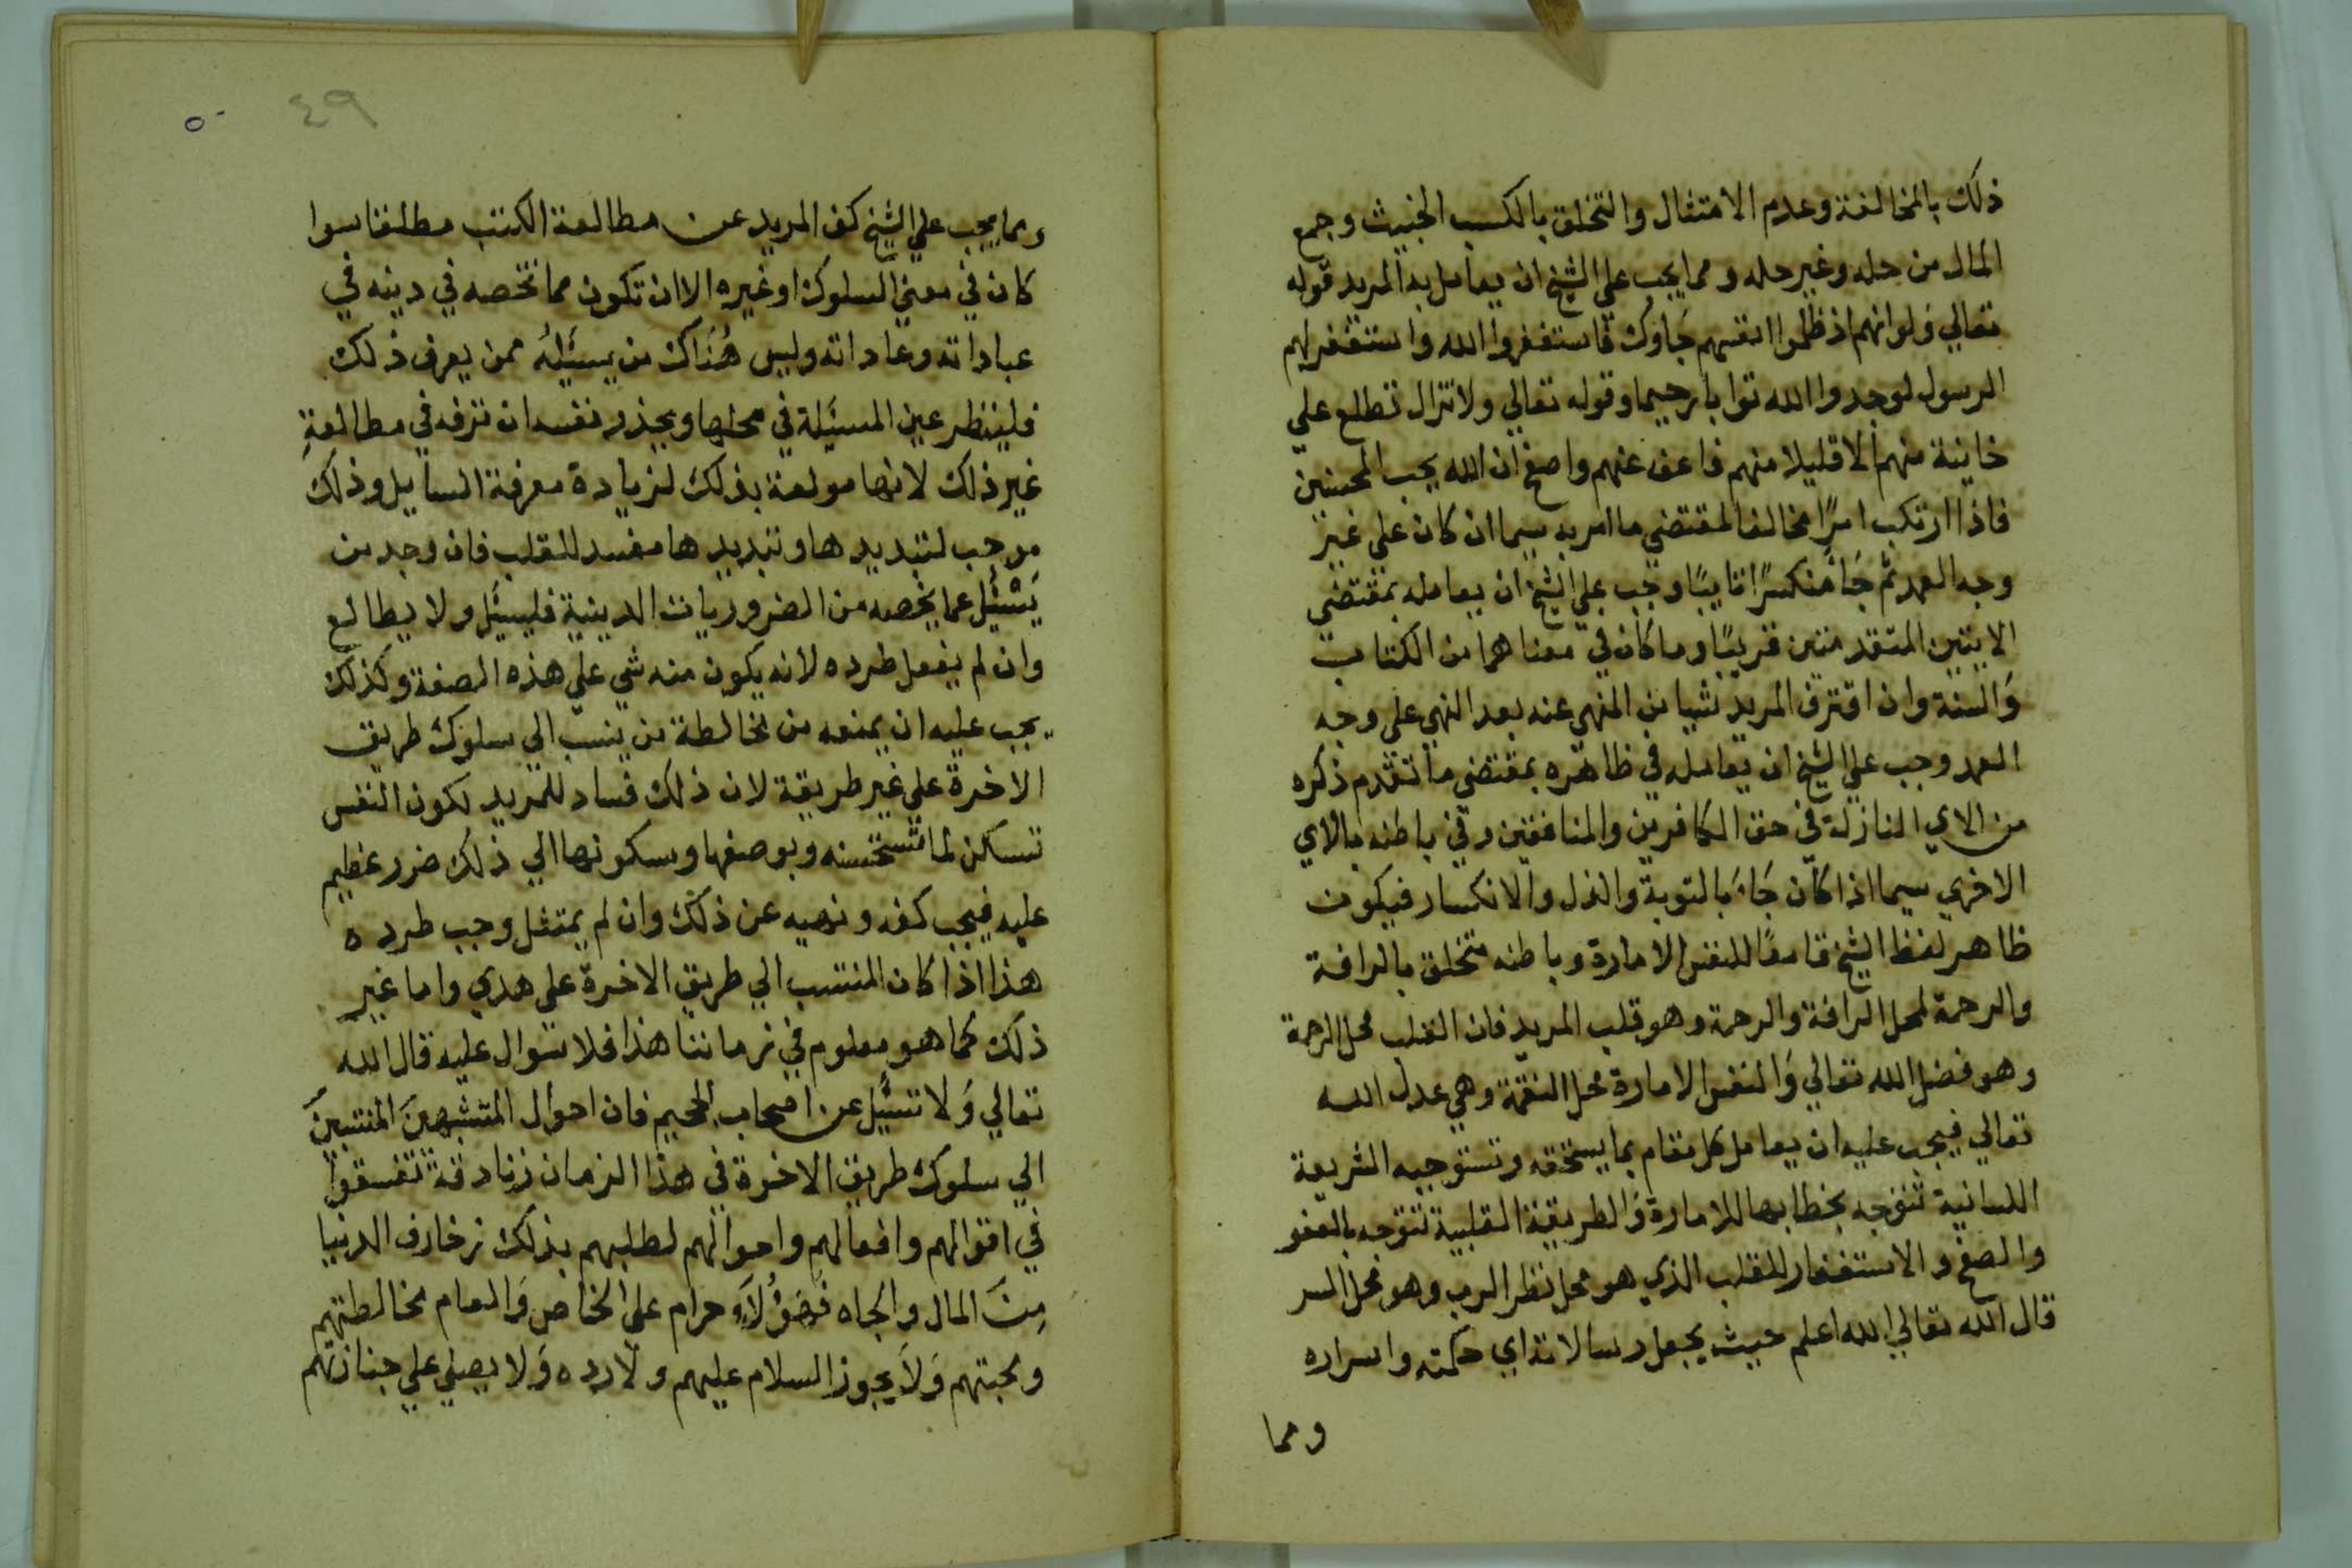 ذلك بالمخالفة وعدم الامتثال والتخلق بالكسب الخبيث وجمع
المال من حله وغير حله ومما يجب علي الشيخ ان يعامل به المريد قوله
تعالي ولو انهم اذ ظلموا انفسهم جاوك فاستغفروا الله واستغفر لهم
الرسول لوجدوا الله توابا رحيما وقوله تعالي ولا تزال تطلع علي
خاينة منهم الا قليلا منهم فاعف عنهم واصفح ان الله يحب المحسنين
فاذا ارتكب امرًا مخالفا لمقتضي ما امر به سيما ان كان علي غير
وجه العمد ثم جَا منكسرًا تايبًا وجب علي الشيخ ان يعامله بمقتضي
الايتين المتقدمتين قريبًا وما كان في معناهما من الكتاب
وَالسنة وان اقترف المريد شيا من المنهي عنه بعد النهي علي وجه
العمد وجب علي الشيخ ان يعامله في ظاهره بمقتضي ما تقدم ذكره
من الاي النازلة في حق الكافرين والمنافقين وفي باطنه بالاي
الاخري سيما اذا كان جَاءَ بالتوبة والذل والانكسار فيكون
ظاهر لفظ الشيخ قامعًا للنفس الامارة وباطنه متخلق بالرافة
والرحمة لمحل الرافة والرحمة وهو قلب المريد فان القلب محل الرحمة
وهو فضل الله تعالي وَالنفس الامارة محل النقمة وهي عدل الله
تعالي فيجب عليه ان يعامل كل مقام بما يستحقه وتستوجبه الشريعة
اللسانية تتوجه بخطابها للامارة وَالطريقة القلبية تتوجه بالعفو
والصفح والاستغفار للقلب الذي هو محل نظر الرب وهو محل السر
قال الله تعالي الله اعلم حيث يجعل رسالاته اي حكمته واسراره
ومما
٤٩
٥٠
ومما يجب علي الشيخ كف المريد عن مطالعة الكتب مطلقا سوا
كان في معني السلوك او غيره الا ان تكون مما تخصه في دينه في
عباداته وعاداته وليس هُنَاك من يسئَلهُ ممن يعرف ذلك
فلينظر عين المسئَلة في محلها ويحذر نفسه ان ترفه في مطالعةِ
غير ذلك لانها مولعة بذلك لزيادة معرفة المسايل وذلك
موجب لتبديدها وتبديدها مفسد للقلب فان وجد من
يَسْئَل عما يخصه من الضروريات الدينية فليسئَل ولا يطالع
وان لم يفعل طرده لانه يكون منه شي علي هذه الصفة وكذلك
يجب عليه ان يمنعه من مخالطة من ينسب الي سلوك طريق
الاخرة علي غير طريقة لان ذلك فساد للمريد لكون النفس
تسكن لما تستحسنه وبوصفها وسكونها الي ذلك ضرر عظيم
عليه فيجب كفه ونهيه عن ذلك وان لم يمتثل وجب طرده
هذا اذا كان المنتسب الي طريق الاخرة علي هدي واما غير
ذلك كما هو معلوم في زماننا هذا فلا سوال عليه قال الله
تعالي وَلا تسئَل عن اصحاب الجحيم فان احوال المتشبهينَ المنتسبينَ
الي سلوك طريق الاخرة في هذا الزمان زنادقة تفسقوا
في اقوالهم وافعالهم واحوالهم لطلبهم بذلك زخارف الدنيا
مِنَ المال والجاه فَهَؤُلَاءِ حرام علي الخاص وَالعام مخالطتهم
ومحبتهم وَلَا يجوز السلام عليهم ولا رده وَلا يصلي علي جنازتهم